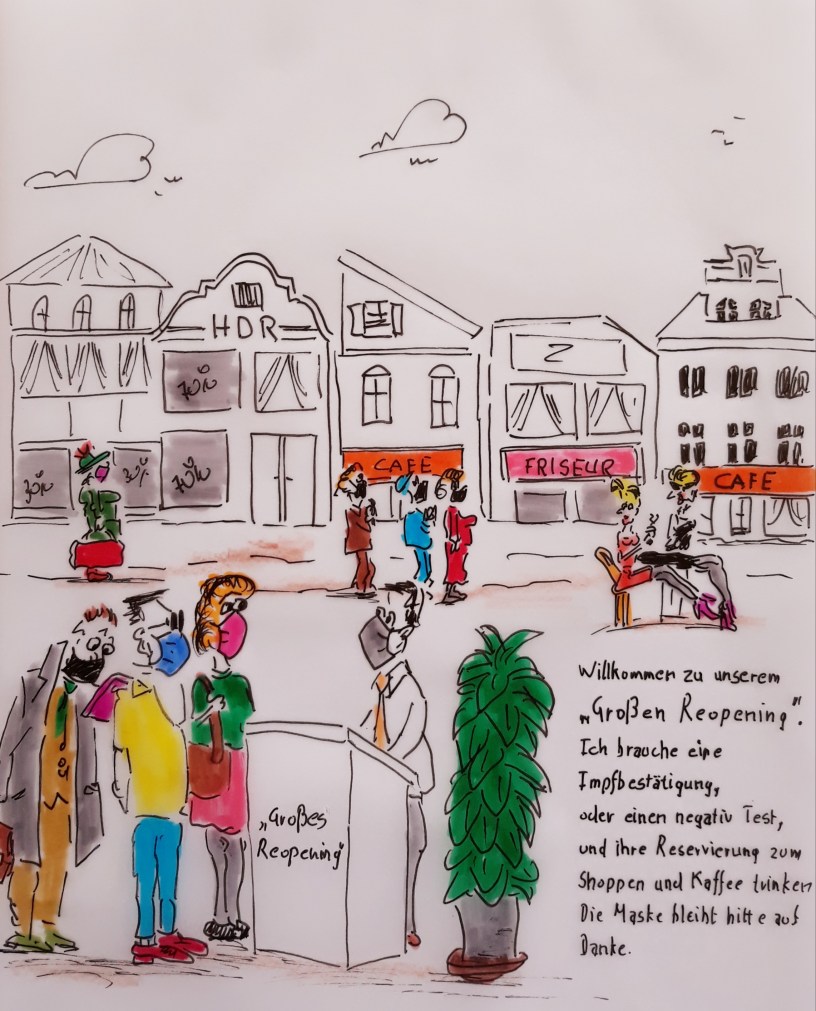 HDR
70%
Z
30%
30%
70%
CAFE
FRISEUR
CAFE
Willkommen zu unserem
„Großen Reopening“.
Ich brauche eine
Impfbestätigung,
oder einen negativ Test,
und ihre Reservierung zum
Shoppen und Kaffee trinken
Die Maske bleibt bitte auf
Danke.
„Großes
Reopening“